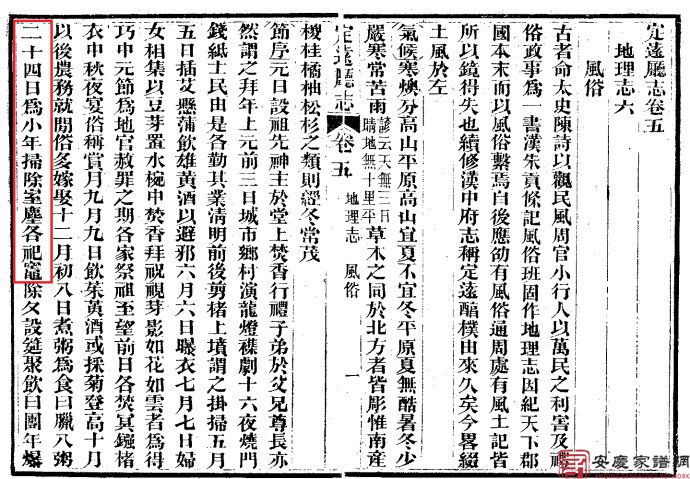 定遠廳志卷五
地理志六
風俗
古者命太史陳詩以觀民風周官小行人以萬民之利害及禮
俗政事爲一書漢朱貢條記風俗班固作地理志因紀天下郡
國本末而以風俗繫焉自後應劭有風俗通周處有風土記皆
所以鏡得失也續修漢中府志稱定遠醇樸由來久矣今畧綴
土風於左
氣候寒燠分高山平原高山宜夏不宜冬平原夏無酷暑冬少
嚴寒常苦雨諺云天無三日晴地無十里平草木之同於北方者皆彫惟南産
定遠廳志
卷五
地理志 風俗
一
椶桂橘柚松杉之類則經冬常茂
節序元日設祖先神主於堂上焚香行禮子弟於父兄尊長亦
然謂之拜年上元前三日城市鄉村演龍燈襍劇十六夜燒門
錢紙士民由是各勤其業清明前後剪楮上墳謂之掛掃五月
五日插艾懸蒲飲雄黃酒以避邪六月六日曝衣七月七日婦
女相集以豆芽置水椀中焚香拜祝視芽影如花如雲者爲得
巧中元節爲地官赦罪之期各家祭祖至望前日各焚冥鏹楮
衣中秋夜宴俗稱賞月九月九日飲茱黃酒或採菊登高十月
以後農務就閒俗多嫁娶十二月初八日煮粥爲食曰臘八粥
二十四日爲小年掃除室塵各祀竈除夕設筵聚飲曰團年爆
安慶家譜網
WWW.AQJPW.COM